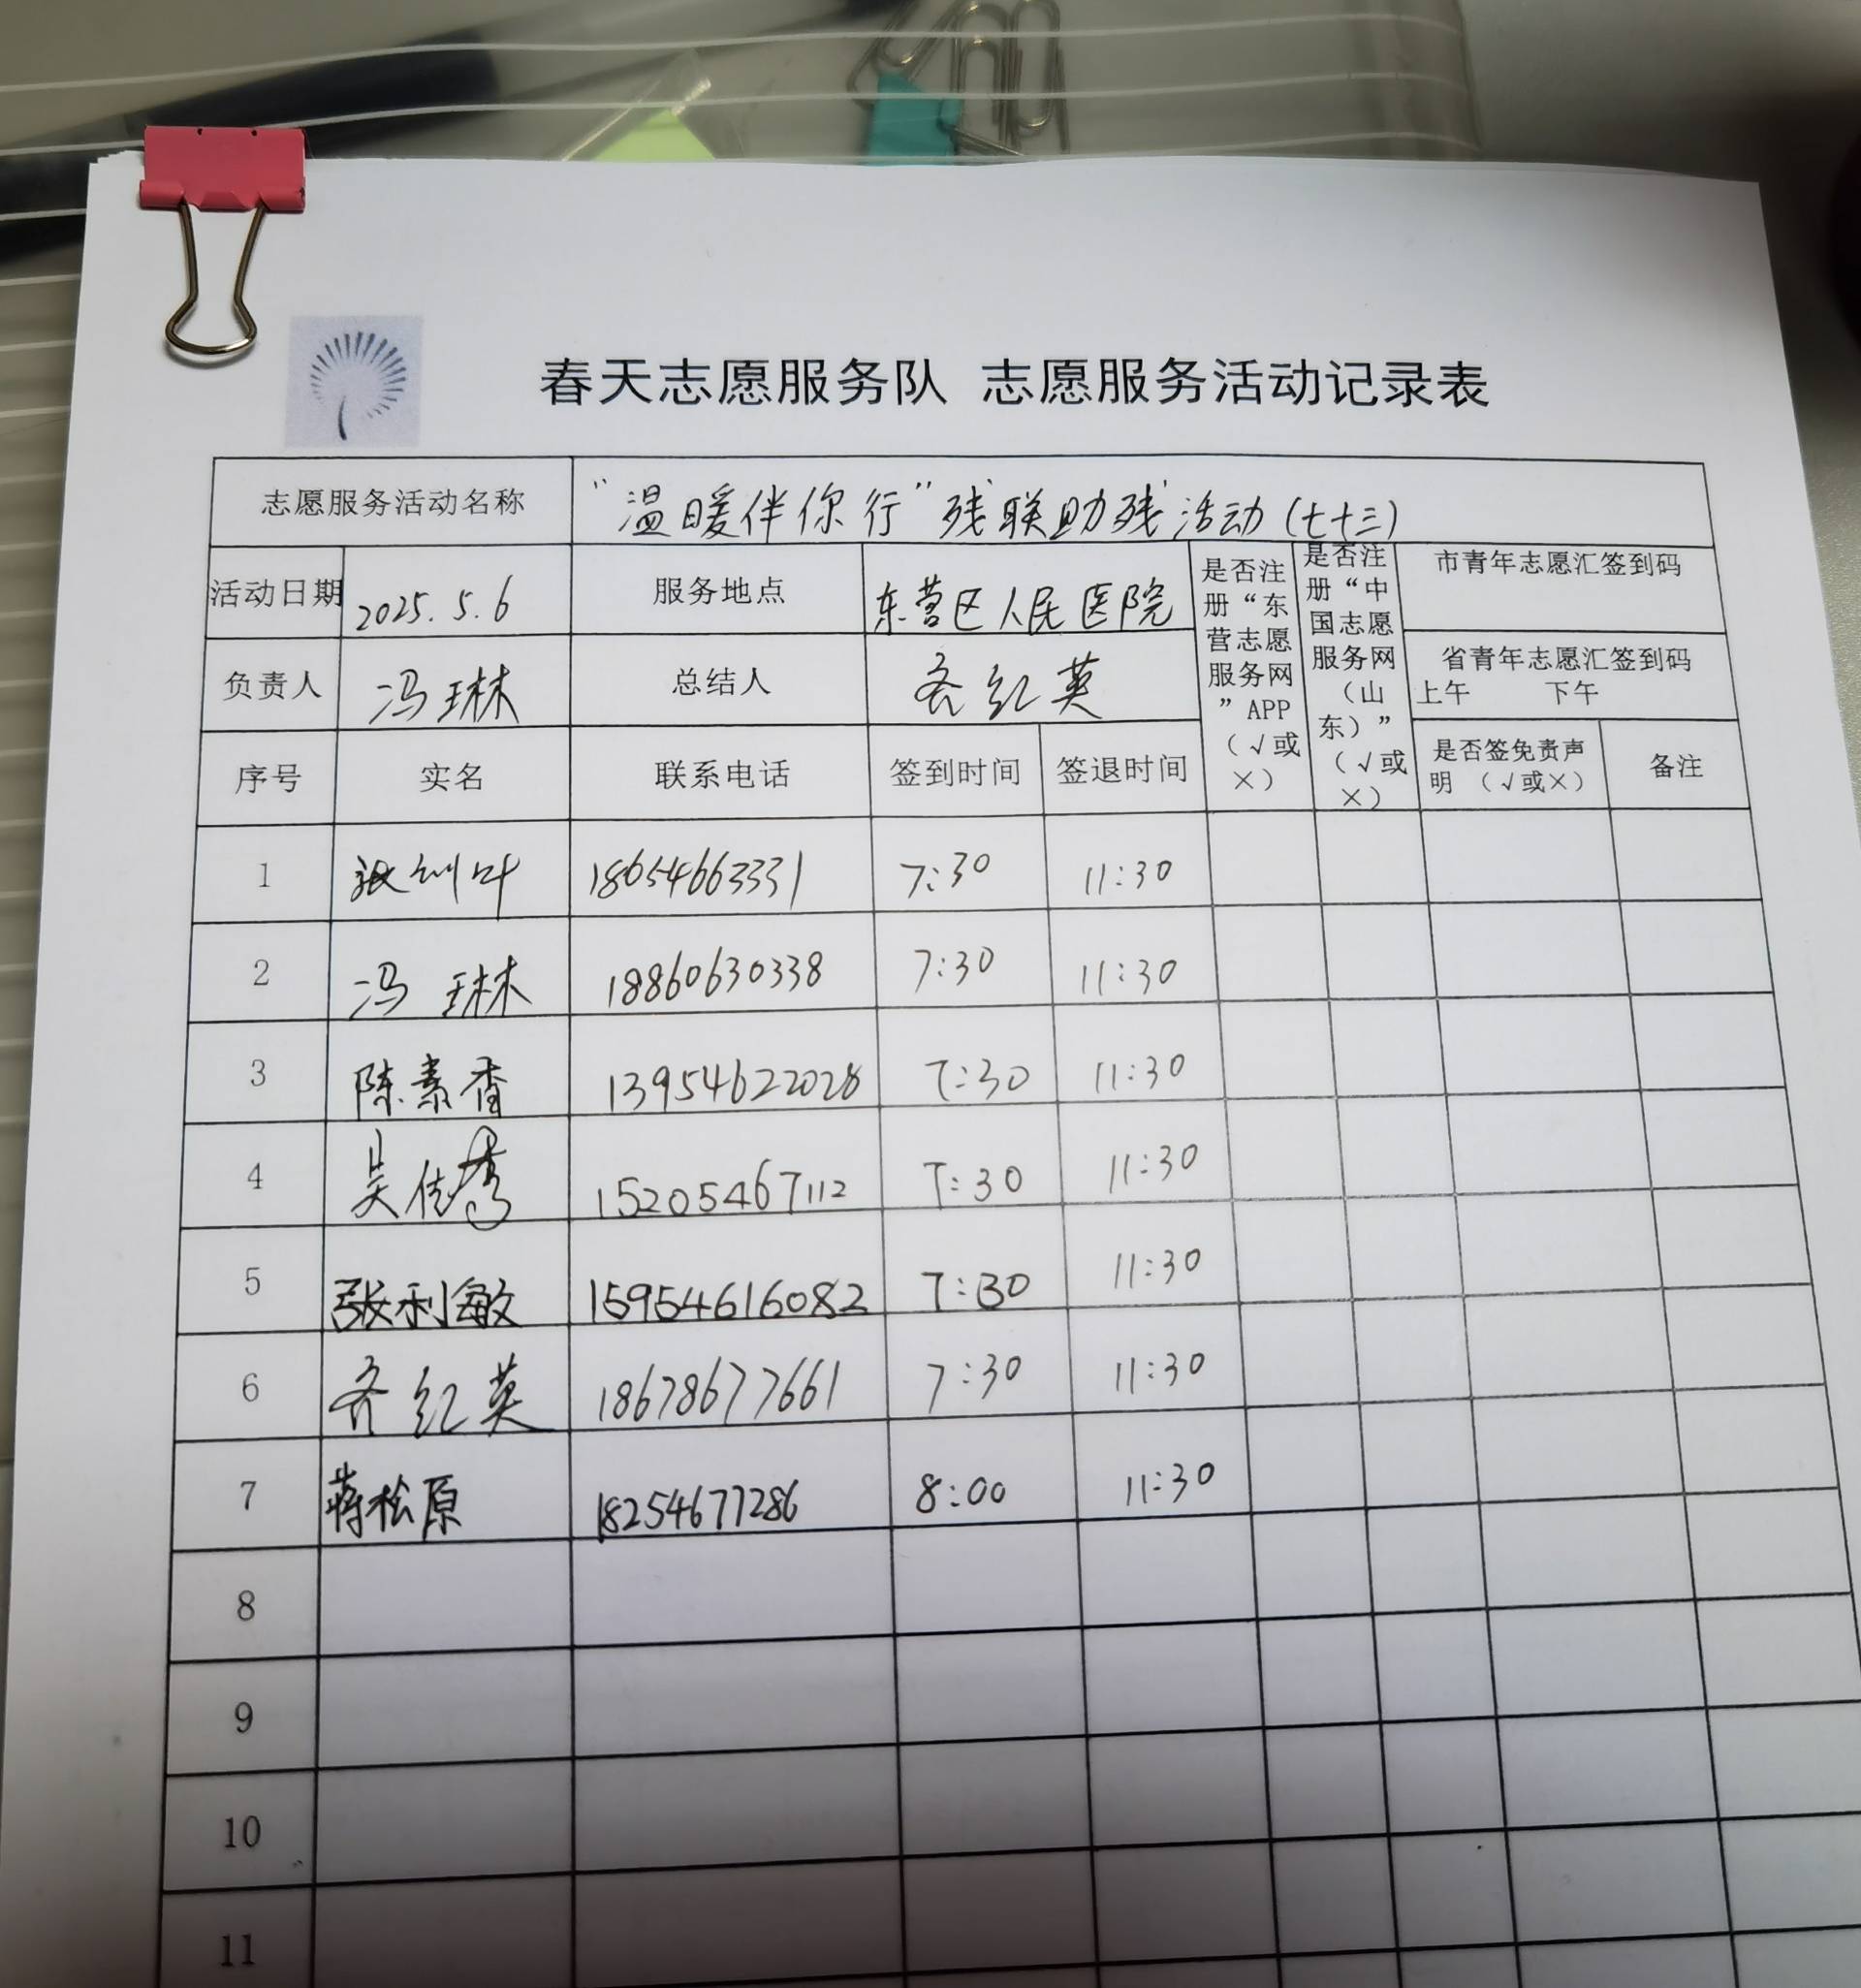 春天志愿服务队 志愿服务活动记录表
志愿服务活动名称 “温暖伴你行”残联助残活动(七十三)
活动日期 2025.5.6 服务地点 东营区人民医院 是否注册“东营志愿服务网”APP（√或×） 是否注册“中国志愿服务网（山东）”（√或×） 市青年志愿汇签到码
负责人 冯琳 总结人 齐红英 省青年志愿汇签到码
上午 下午
序号 实名 联系电话 签到时间 签退时间 是否签免责声明 （√或×） 备注
1 18654663331 7:30 11:30
2 冯琳 18860630338 7:30 11:30
3 陈素香 13954622028 7:30 11:30
4 吴传秀 15205467112 7:30 11:30
5 张利敏 15954616082 7:30 11:30
6 齐红英 18678677661 7:30 11:30
7 蒋松原 18254677286 8:00 11:30
8
9
10
11